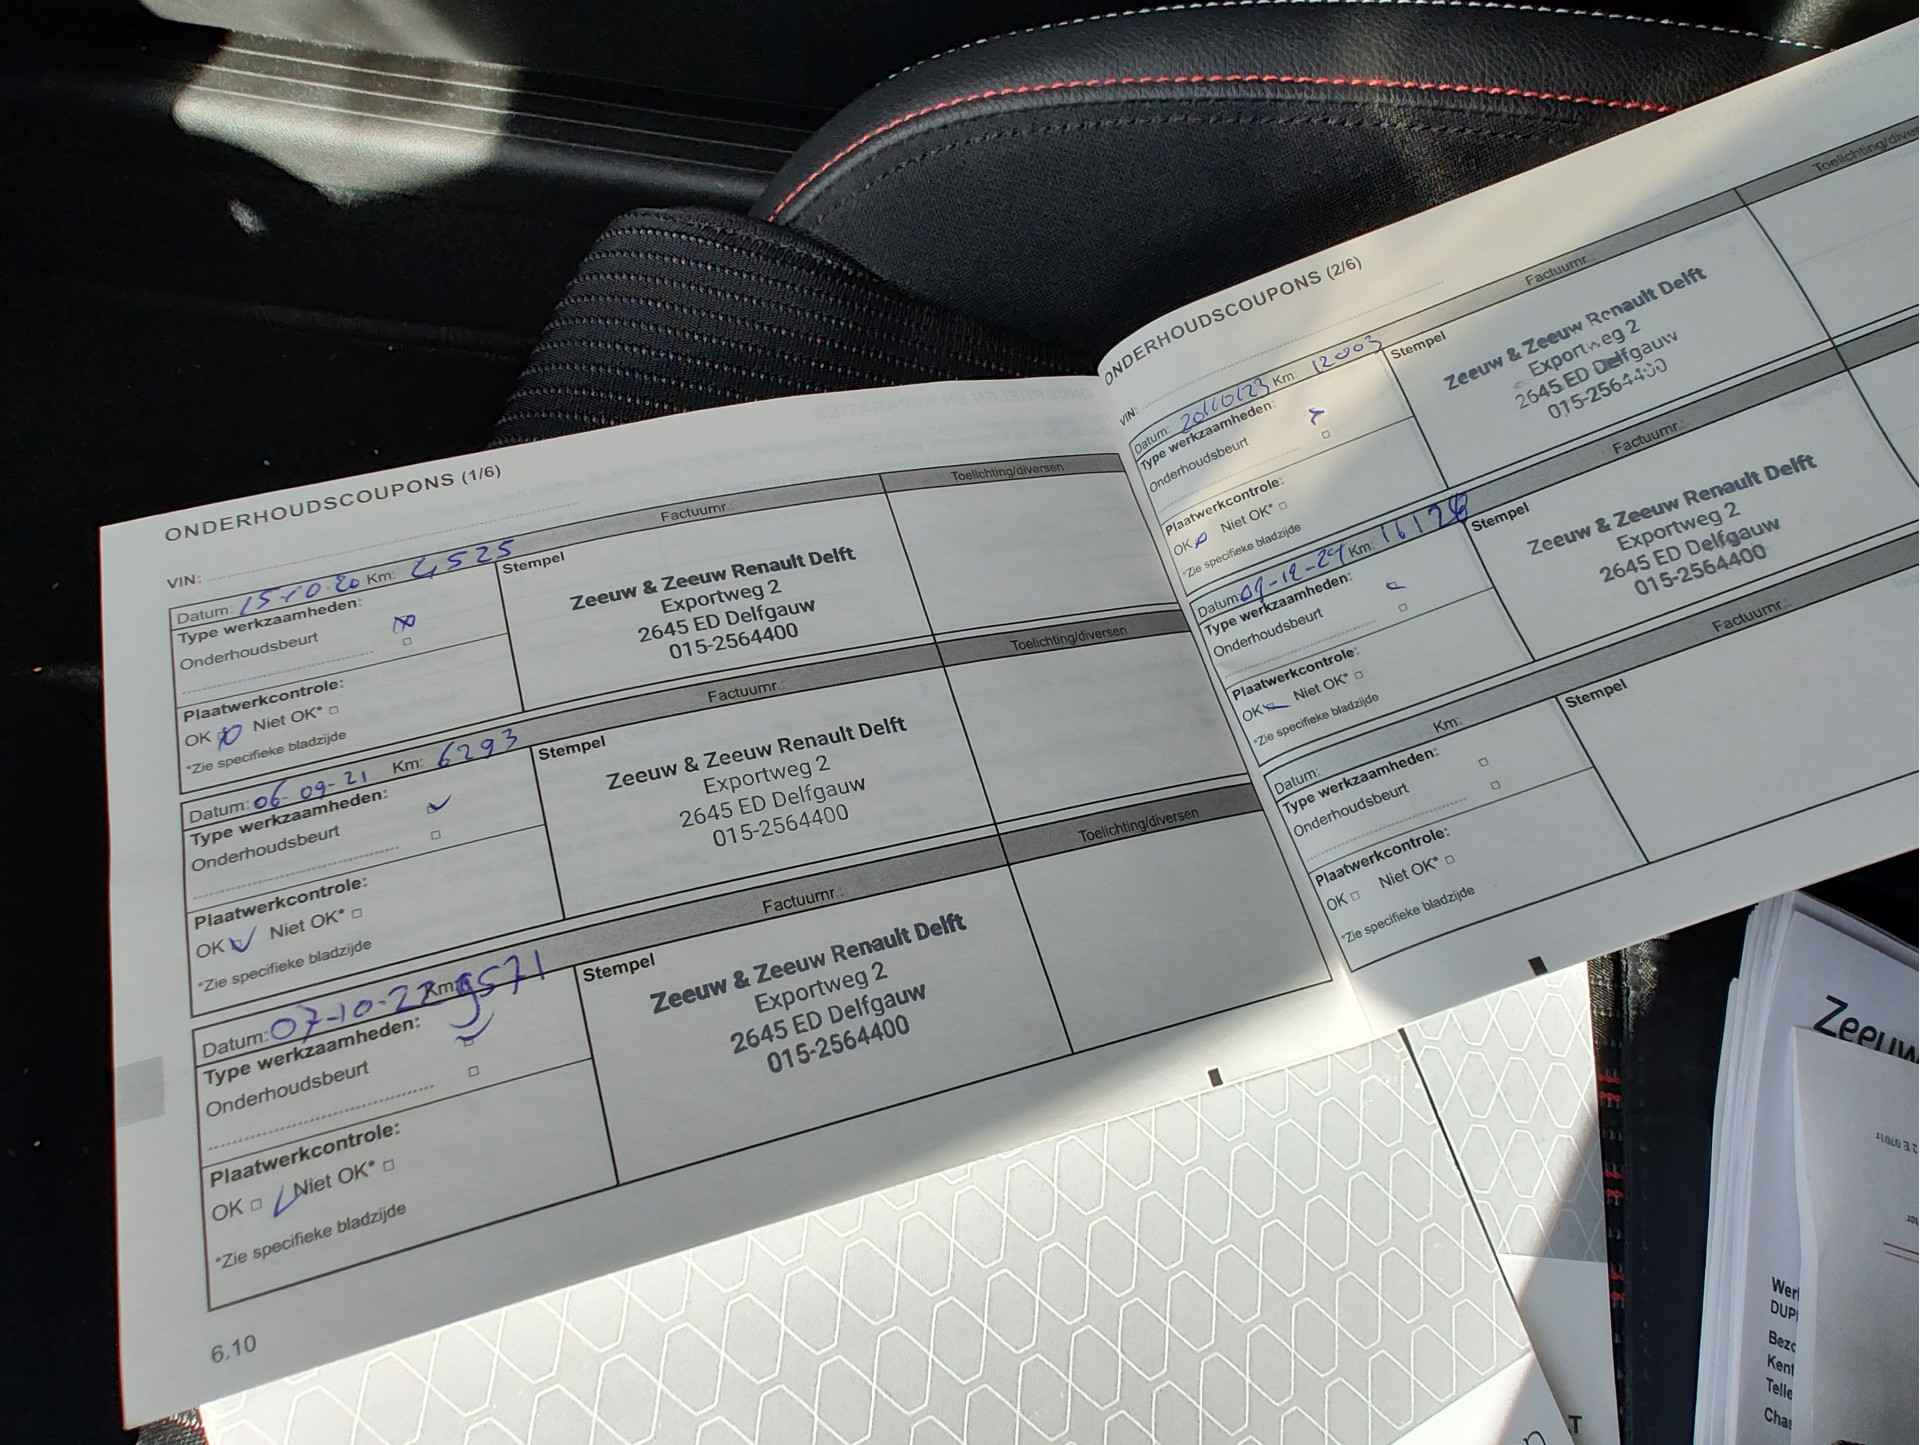 ONDERHOUDSCOUPONS (1/6)
VIN:
Datum: 15-10-20 Km: 4525
Factuurnr.:
Toelichting/diversen
Type werkzaamheden:
Onderhoudsbeurt
Plaatwerkcontrole:
OK Niet OK*
*Zie specifieke bladzijde
Stempel
Zeeuw & Zeeuw Renault Delft
Exportweg 2
2645 ED Delfgauw
015-2564400
Datum: 06-09-21 Km: 6293
Factuurnr.:
Toelichting/diversen
Type werkzaamheden:
Onderhoudsbeurt
Plaatwerkcontrole:
OK Niet OK*
*Zie specifieke bladzijde
Stempel
Zeeuw & Zeeuw Renault Delft
Exportweg 2
2645 ED Delfgauw
015-2564400
Datum: 07-10-22 Km: 9571
Factuurnr.:
Toelichting/diversen
Type werkzaamheden:
Onderhoudsbeurt
Plaatwerkcontrole:
OK Niet OK*
*Zie specifieke bladzijde
Stempel
Zeeuw & Zeeuw Renault Delft
Exportweg 2
2645 ED Delfgauw
015-2564400
6.10
ONDERHOUDSCOUPONS (2/6)
VIN:
Datum: 20/10/23 Km: 12003
Factuurnr.:
Toelichting/diver
Type werkzaamheden:
Onderhoudsbeurt
Plaatwerkcontrole:
OK Niet OK*
*Zie specifieke bladzijde
Stempel
Zeeuw & Zeeuw Renault Delft
Exportweg 2
2645 ED Delfgauw
015-2564400
Datum: 09-12-24 Km: 16128
Factuurnr.:
Type werkzaamheden:
Onderhoudsbeurt
Plaatwerkcontrole:
OK Niet OK*
*Zie specifieke bladzijde
Stempel
Zeeuw & Zeeuw Renault Delft
Exportweg 2
2645 ED Delfgauw
015-2564400
Datum: Km:
Factuurnr.:
Type werkzaamheden:
Onderhoudsbeurt
Plaatwerkcontrole:
OK Niet OK*
*Zie specifieke bladzijde
Stempel
Zeeuw
DUP
Bezo
Kent
Telle
Chas